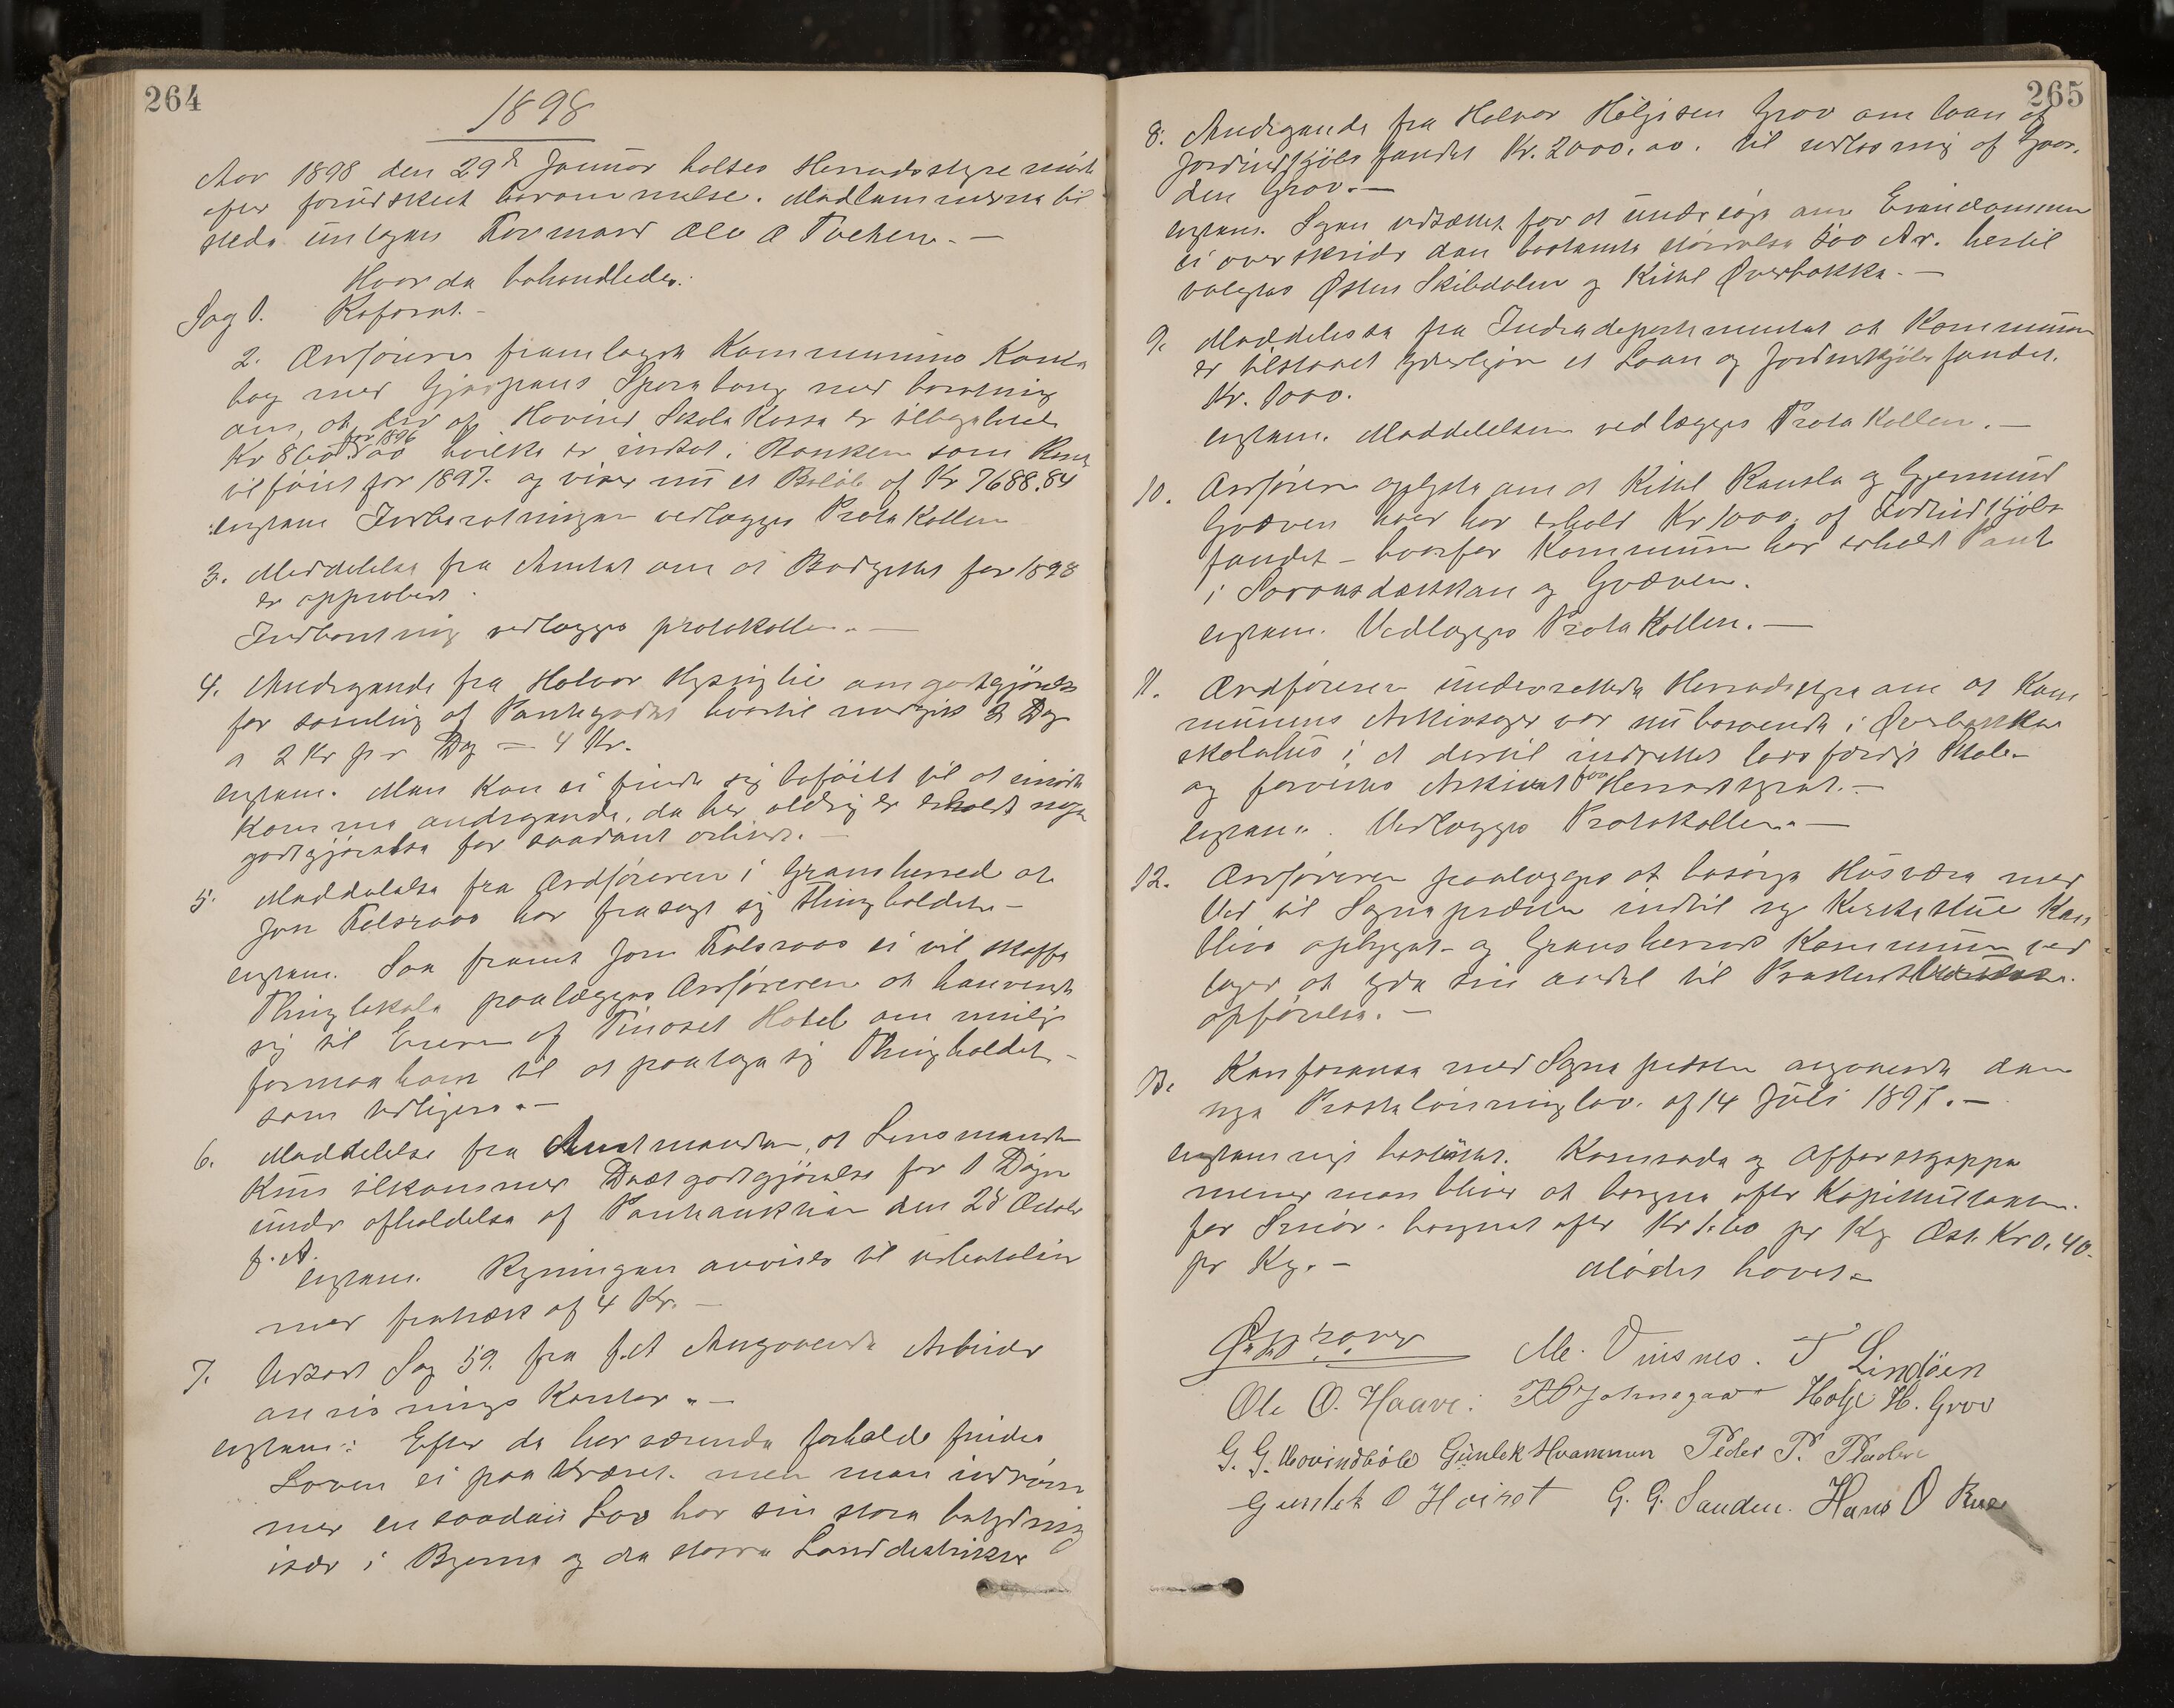 264
1898
Aar 1898 den 29de Januar holtes Herredsstyre møde
efter forudskeet berammelse. Medlemmerne til
stede untagen Formand Ole O
Hvor da behandledes:
Sag 1. Referat. -
2. Ordføreren fremlagde Kommunens Konta
bog med Gjerpens Sparebang med beretning
om, at der af Hovind Skole Kasse er tilbagebetalt
for 1896
Kr 860.00 hvilke er indsat i Banken som Rente
tilføiet for 1897. og viser nu et Beløb af Kr 7688.84
enstem Indberetningen vedlægges Protokollen
3. Meddelelse fra Amtet om at Budgettet for 1898
er approbert.
Indberetning vedlægges protokollen. —
4. Andragende fra Halvor Mysuglie om godtgjørelse
for samling af Pantegodset hvortil medgik 2 Dage
a 2 Kr pr Dag = 4 Kr.
enstem. Man kan ei finde sig beføiet til at imøde
komme andragende, da her aldrig er erholdt nogen
godtgjørelse for saadant arbeide. —
5. Meddelelse fra Ordføreren i Gransherred at
Jon Folseraas har frasagt sig Thingholdet -
enstem. Saa fremt Jon Folseraas ei vil skaffe
Thinglokale paalægges Ordføreren at henvende
sig til Eieren af Tinoset Hotel om mulig
formaa ham til at paatage sig Thingholdet -
som tidligere. —
6. Meddelelse fra Amtmanden, at Lensmanden
Kun tilkommer Diæt godtgjørelse for 1 Døgn
under afholdelse af Panteauktion den 28 Octobr
f. A.
enstem. Regningen anvises til udbetaling
med fradrag af 4 Kr. —
7. Udsat Sag 59. fra f. A Angaaende Arbeids
anvisnings Kontor. —
enstem: Efter de her værende forholde findes
Loven ei paa Krævet. men man indrøm
mer en saadan Lov har sin store betydning
især i Byerne og de større Landdistrikter
265
8. Andragende fra Halvor Høljesen Grov om laan af
Jordindkjøbs fondet Kr. 2000.00. til udløsning af Gaar.
den Grov. —
enstem. Sagen udsættes for at undersøge om Eiendommen
ei overskrider den bestemte størrelse 500 Ar. hertil
valgtes Østen Skibdalen og Kittel Øverbakke. —
9. Meddelelse fra Indredepartementet at Kommunen
er tilstaaet yderligere et Laan og Jordindkjøbs fondet.
Kr. 1000.
enstem. Meddelelsen vedlægges Protokollen. —
10. Ordføreren oplyste om at Kittel Rausla og Gjermund
Godøen hver har erhold Kr 1000, af Jordindkjøbs
fondet - hvorfor Kommunen har erholdt Pant
i og Godøen.
enstem. Vedlægges Protokollen. —
11. Ordføreren underrettede Herredstyre om at Kom
munens Arkivsager var nu beroende i Øverbøkka
skolehus i et dertil indrettet laasfærdigt Skole-
og forenede Arkivet for Herredstyret. —
enstem. Vedlægges Protokollen. —
12. Ordføreren paalægges at besørge Husvære med
Ved til Sognepræsten indtil ny Kirkestue Kan
blive opbygget - og Gransherreds Kommune ved
tager at yde sin andel til
opførelse. —
13. Konferanse med Sognepresten angaaende den
nye Presteløningslov. af 14 Juli 1897. —
enstemmigt besluttet. Kosmrode og Offerergoppe
mener man bliver at beregne efter Kapitelstakten.
for Smør. beregnet efter Kr 1.60 pr Kg Ost. Kr 0.40
pr Kg. — Mødet hævet. —
Ole. Vinsnes. T Lindöen
Ole O. Haave. Holje H. Grov
G. G. Hovindbøle Günlek Hvammen Peder P.
Gunlek O Hoiset G. G. Sanden. Hans O Rue